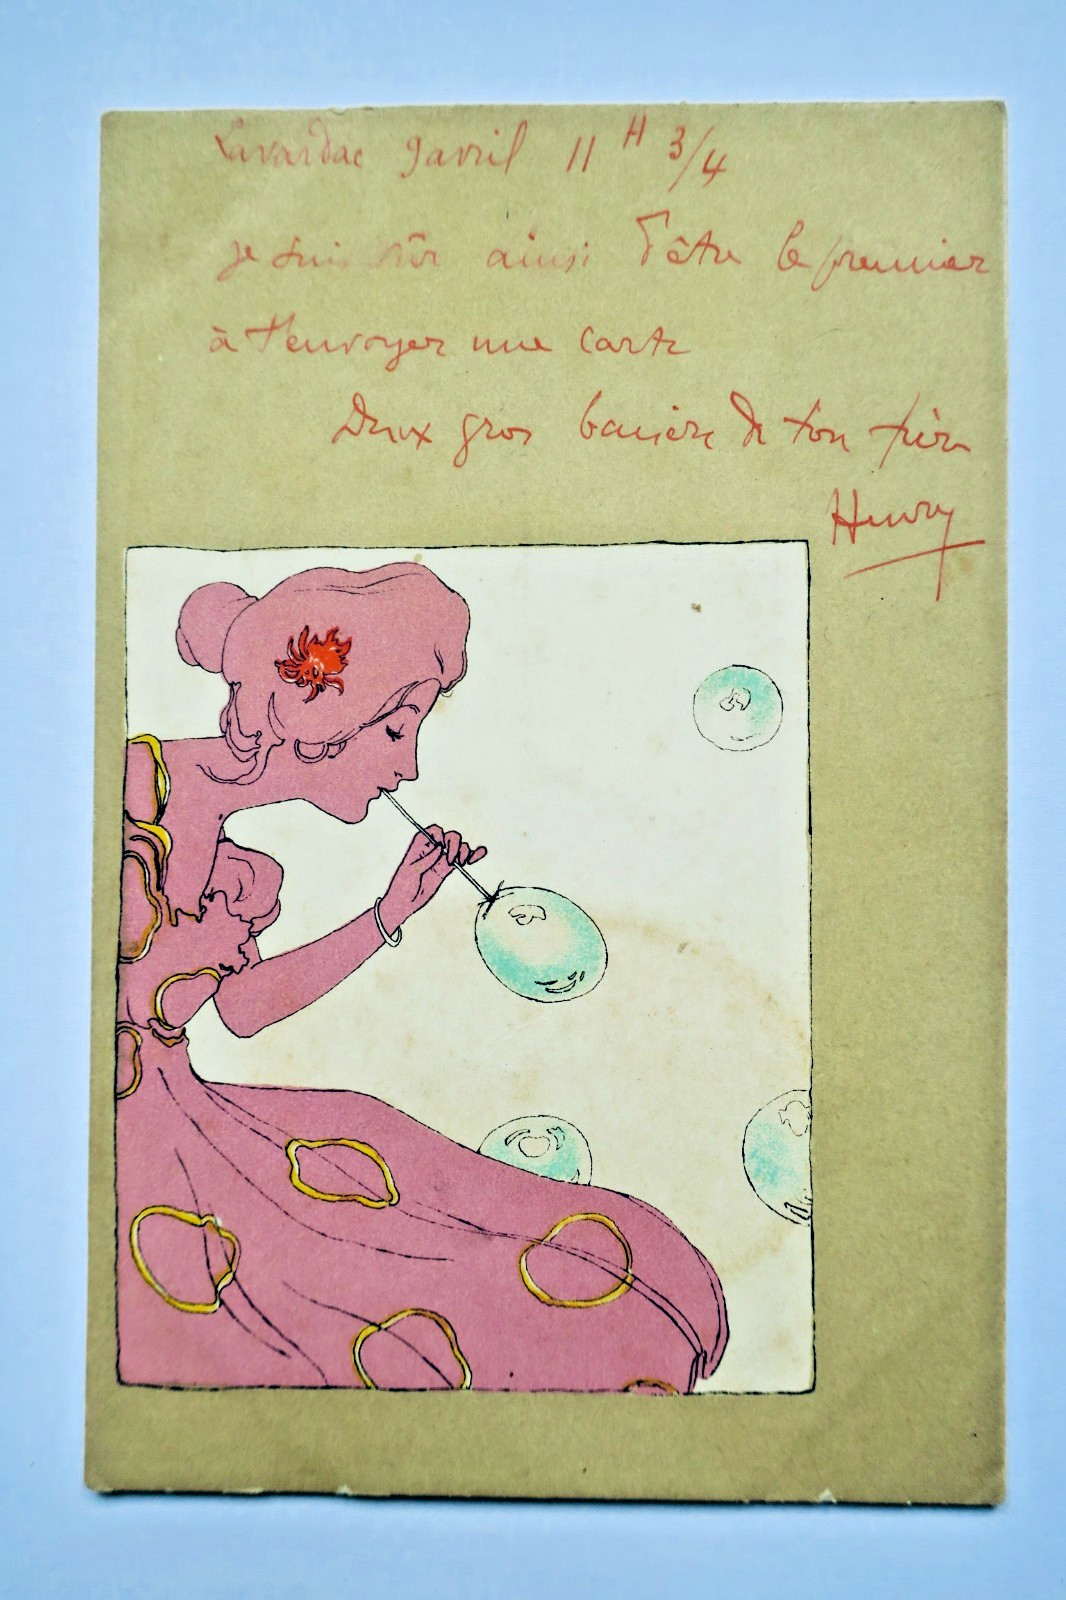 Lavardac 9 avril 11 H 3/4
je suis sûr ainsi d'être le premier
à t'envoyer une carte
Deux gros baisers de ton frère
Henry